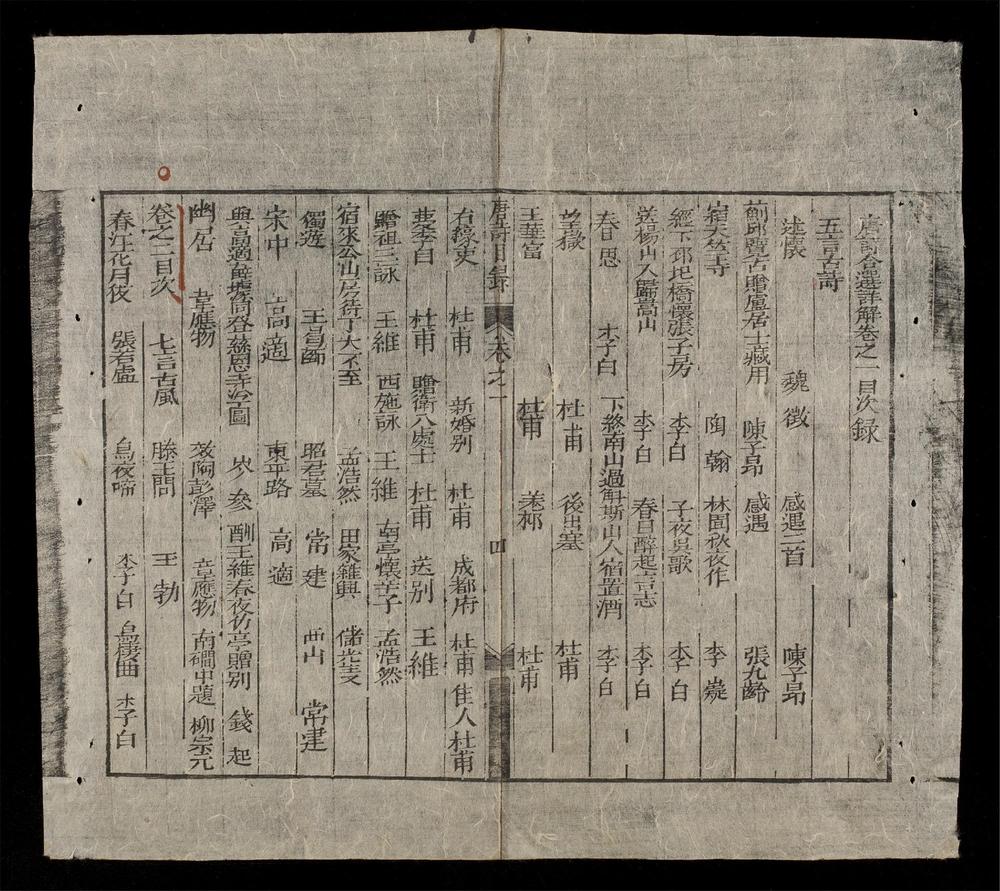 唐詩合選詳解卷之一目次錄
五言古詩
述懷 魏徵 感遇二首 陳子昂
薊邱覽古贈盧居士藏用 陳子昂 感遇 張九齡
宿天竺寺 陶翰 林園秋夜作 李嶷
經下邳圯橋懷張子房 李白 子夜吳歌 李白
送楊山人歸嵩山 李白 春日醉起言志 李白
春思 李白 下終南山過斛斯山人宿置酒 李白
望嶽 杜甫 後出塞 杜甫
玉華宮 杜甫 羌村 杜甫
唐詩目錄 卷之一 四
石壕吏 杜甫 新婚別 杜甫 成都府 杜甫 佳人 杜甫
夢李白 杜甫 贈衛八處士 杜甫 送別 王維
贈祖三詠 王維 西施詠 王維 南亭懷辛子 孟浩然
宿來公山房待丁大不至 孟浩然 田家雜興 儲光羲
獨遊 王昌齡 昭君墓 常建 西山 常建
宋中 高適 東平路 高適
與高適薛據登慈恩寺浮圖 岑參 酬王維春夜竹亭贈別 錢起
幽居 韋應物 效陶彭澤 韋應物 南磵中題 柳宗元
卷之二目次 七言古風 滕王閣 王勃
春江花月夜 張若虛 烏夜啼 李白 烏棲曲 李白